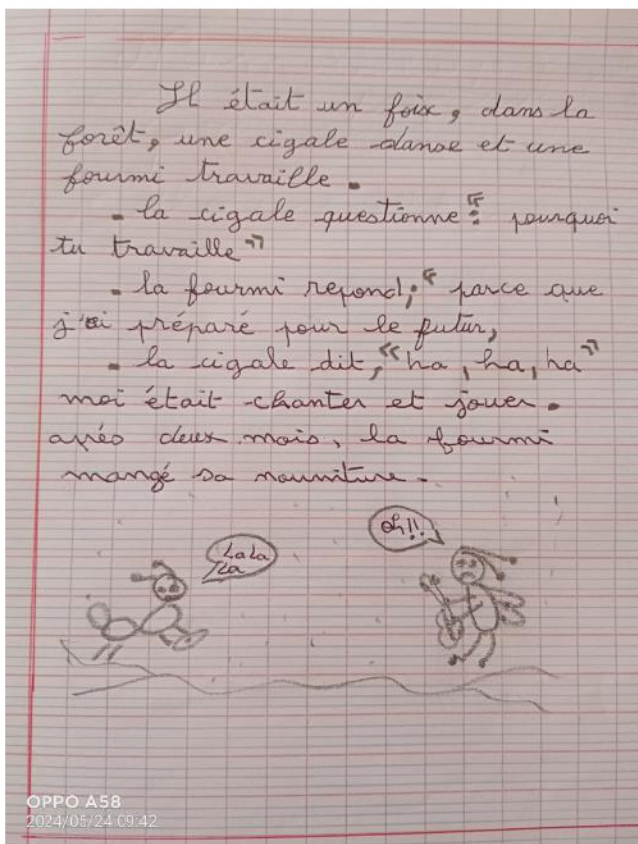 Il était un foix, dans la
forêt, une cigale danse et une
fourmi travaille.
- la cigale questionne : « pourquoi
tu travaille »
- la fourmi repond, « parce que
j'ai préparé pour le futur,
- la cigale dit, « ha, ha, ha »
moi était chanter et jouer.
aprés deux mois, la fourmi
mangé sa nourriture.
oh!!
La La
La
OPPO A58
2024/05/24 09:42